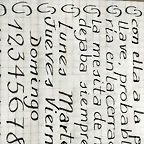 con ella a la
llave, probabl
tía en la cerra
la mesita de n
dejaba siempre
Lunes Marte
Jueves Viern
Domingo
12345678